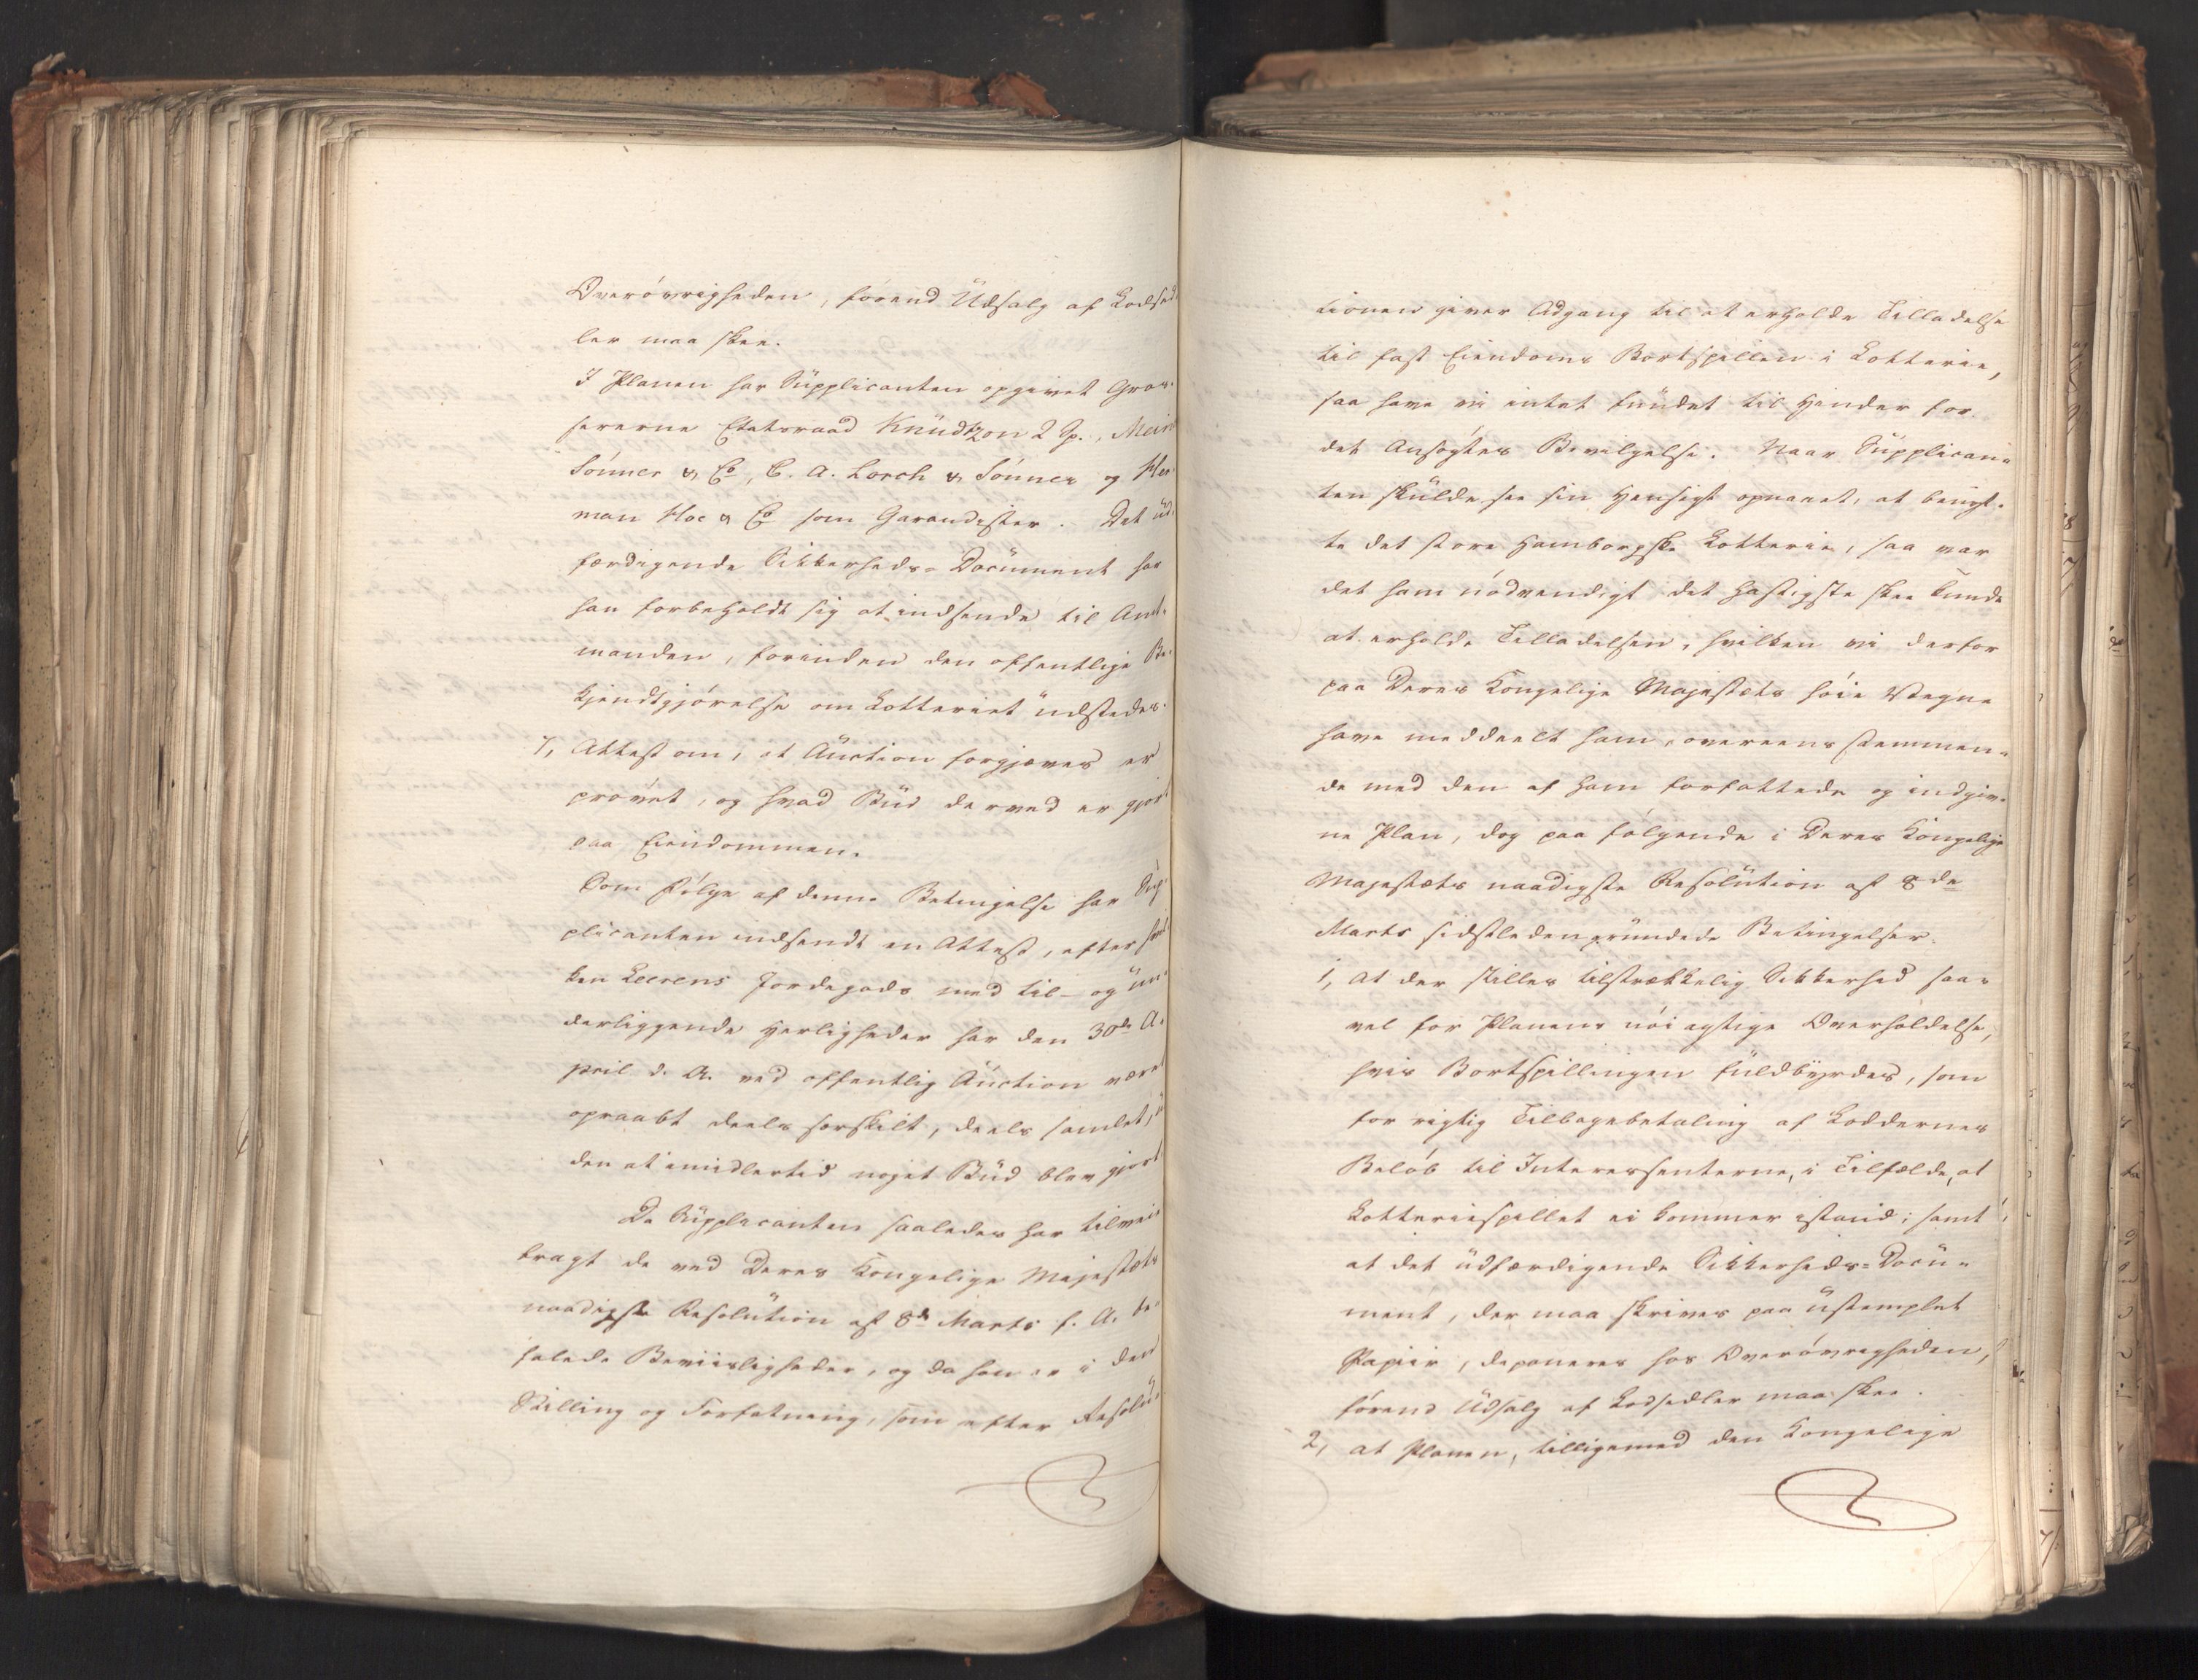 Overövrigheden, förend Udsalg af Lodsed-
ler maa skee.
I Planen har Supplicanten opgivet Gros-
sererne Etatsraad Knudtzon 2 P.,
Sönner & Co, C. A. Lorch & Sönner og Her-
man Hoe & Co som Garandister. Det ud-
færdigende Sikkerheds-Document har
han forbeholdt sig at indsende til Amt-
manden, forinden den offentlige Be-
kjendtgjörelse om Lotteriet udstedes.
7, Attest om, at Auction forgjæves er
prövet, og hvad Bud derved er gjort
paa Eiendommen.
Som Fölge af denne Betingelse har Sup-
plicanten indsendt en Attest, efter hvil-
ken Leerens Jordegods med til- og un-
derliggende Herligheder har den 30de A-
pril d. A. ved offentlig Auction været
opraabt deels særskilt, deels samlet, u-
den at imidlertid noget Bud blev gjort.
Da Supplicanten saaledes har tilveie-
bragt de ved Deres Kongelige Majestæts
naadigste Resolution af 8de Marts f. A. be-
falede Beviisligheder, og da han er i den
Stilling og Forfatning, som efter Resolu-
tionen giver Adgang til at erholde Tilladelse
til fast Eiendoms Bortspillen i Lotterie,
saa have vi intet fundet til Hinder for
det Ansögtes Bevilgelse. Naar Supplican-
ten skulde see sin Hensigt opnaaet, at benyt-
te det store Hamborgske Lotterie, saa var
det ham nödvendigt det hastigste skee kunde
at erholde Tilladelsen, hvilken vi derfor
paa Deres Kongelige Majestæts höie Vegne
have meddeelt ham, overeensstemmen-
de med den af ham forfattede og indgiv-
ne Plan, dog paa fölgende i Deres Kongelige
Majestæts naadigste Resolution af 8de
Marts sidstleden grundede Betingelser.
1, at der stilles tilstrækkelig Sikkerhed saa-
vel for Planens nöiagtige Overholdelse,
hvis Bortspillingen fuldbyrdes, som
for rigtig Tilbagebetaling af Loddernes
Belöb til Interessenterne, i Tilfælde, at
Lotteriespillet ei kommer istand; samt
at det udfærdigende Sikkerheds-Docu-
ment, der maa skrives paa ustemplet
Papiir, deponeres hos Overövrigheden,
förend Udsalg af Lodsedler maa skee.
2, at Planen, tilligemed den Kongelige